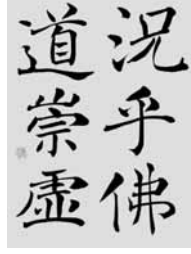 况乎佛
道崇虛